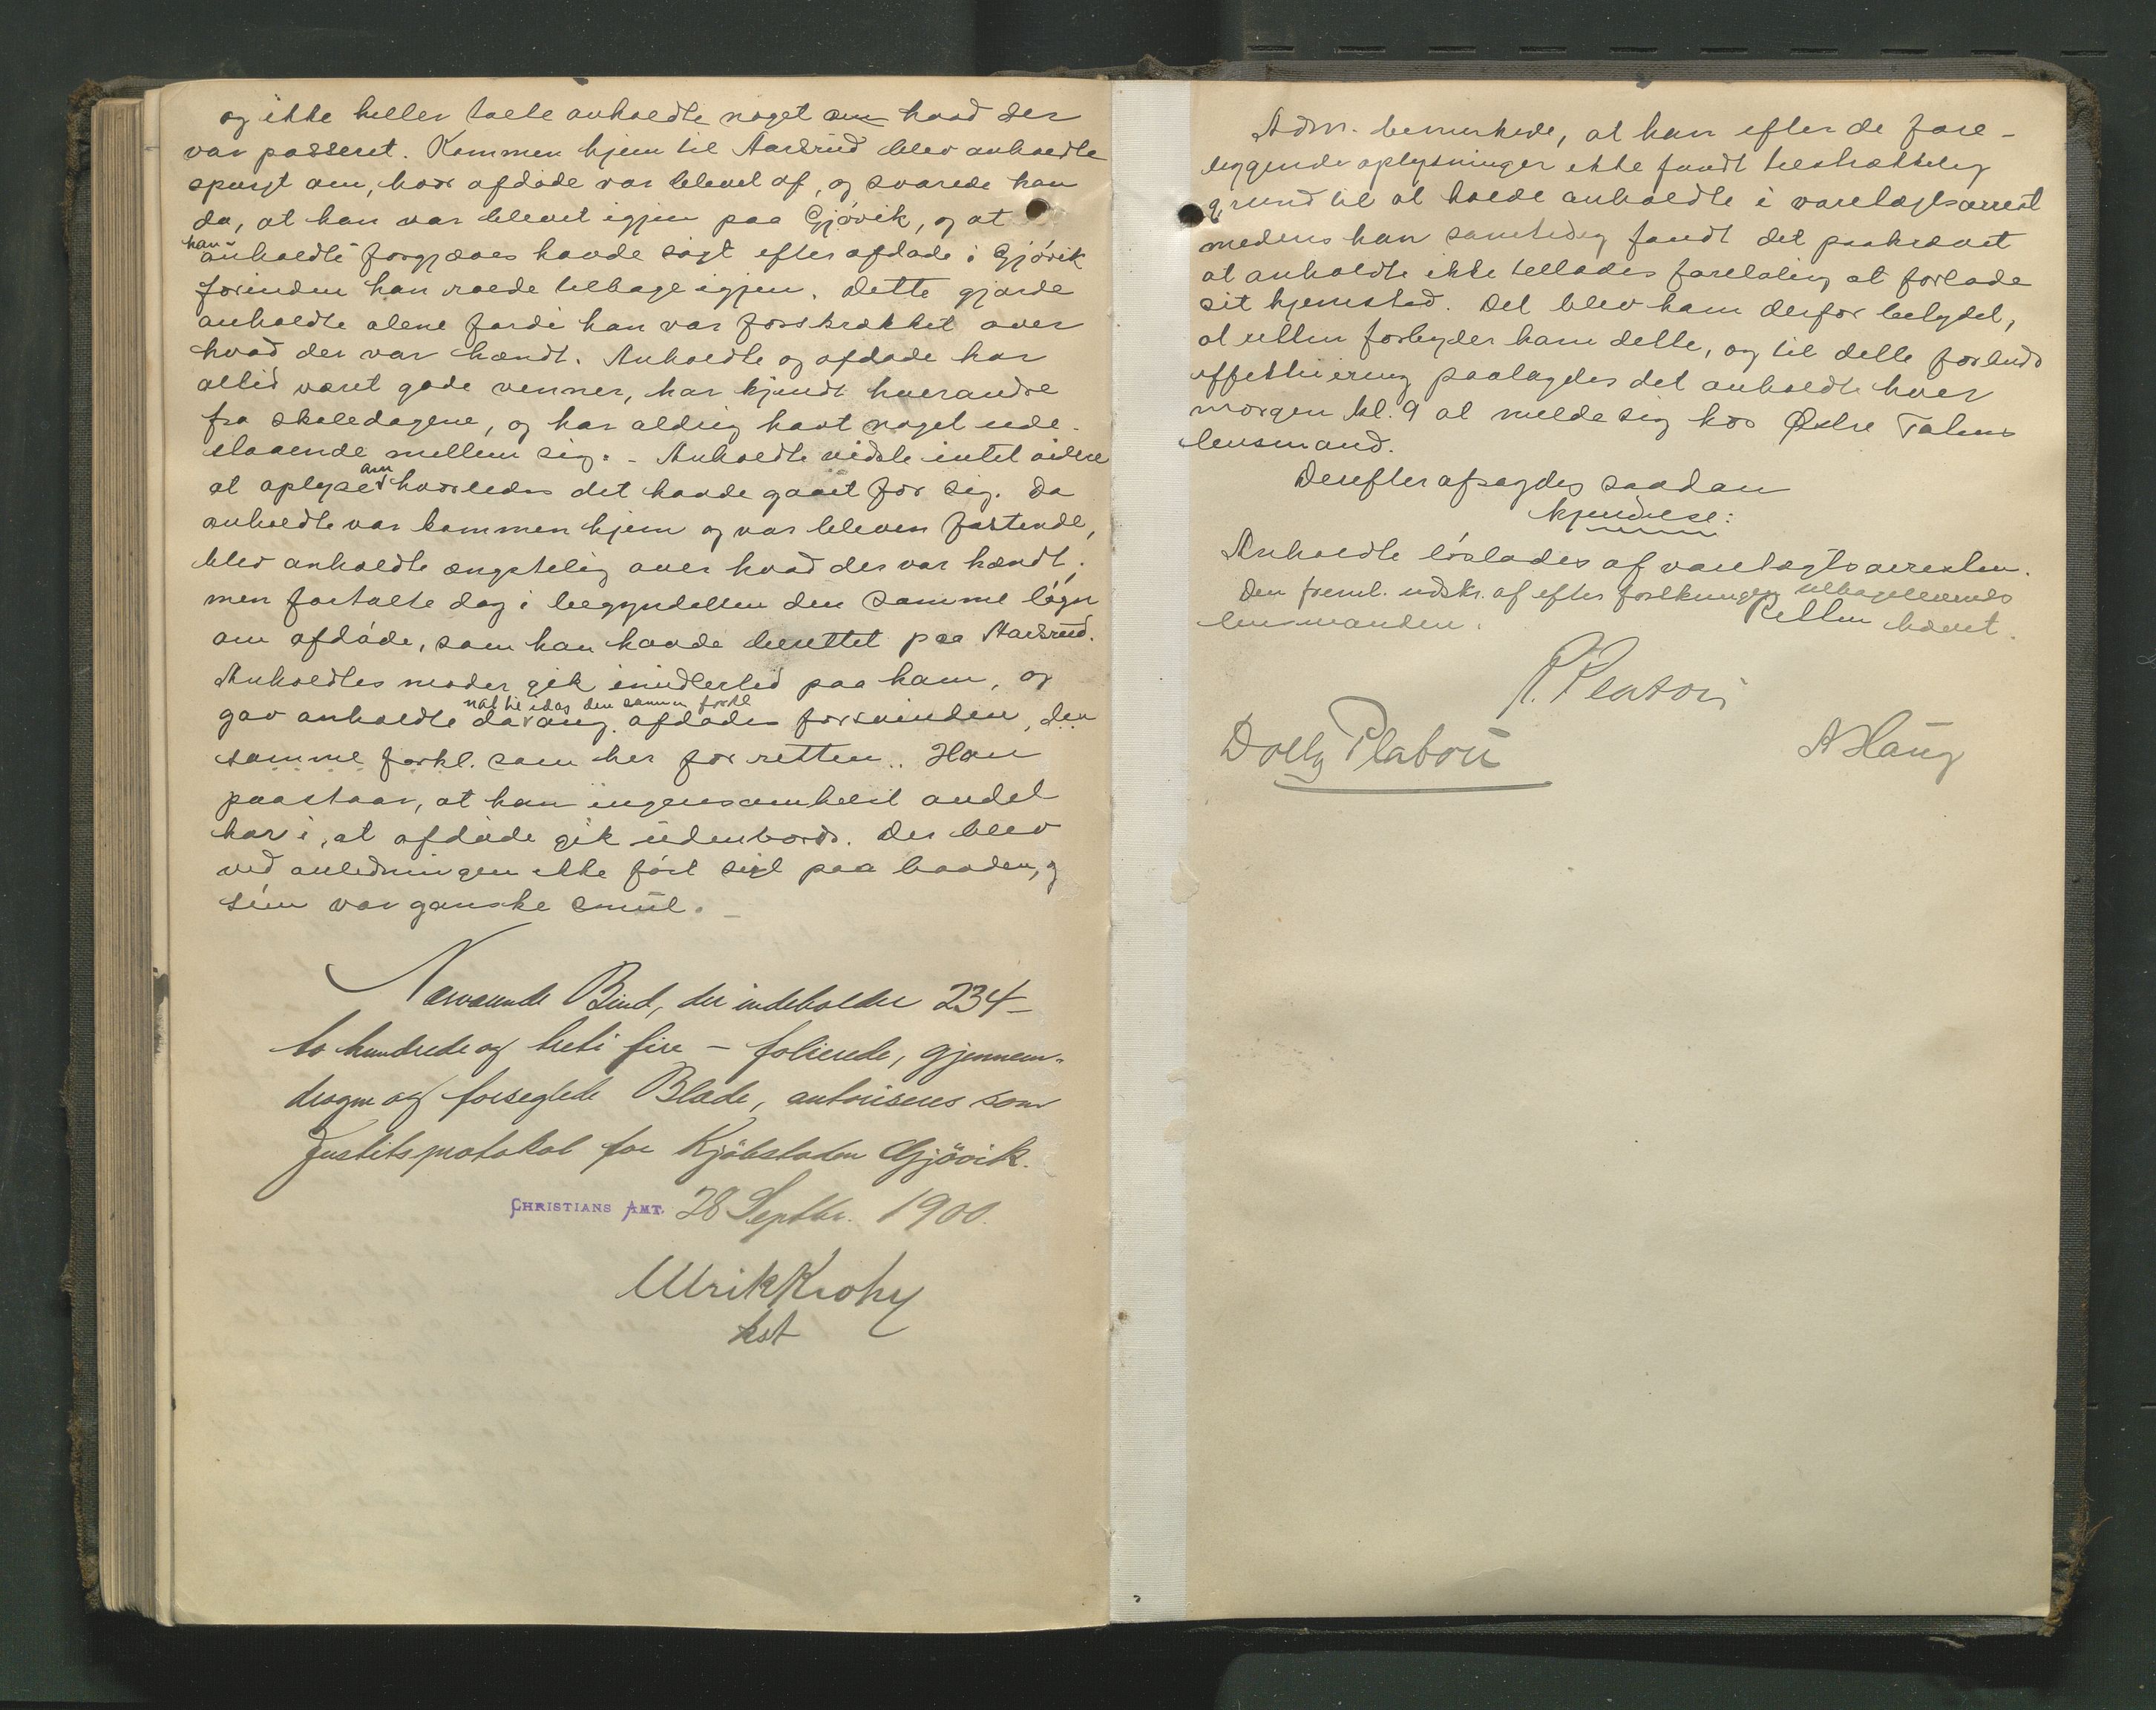 og ikke heller talte anholdte noget om hvad der
var passeret. Kommen hjem til Aarsrud blev anholdte
spurgt om, hvor afdøde var blevet af, og svarede han
da, at han var blevet igjen paa Gjøvik, og at
han
anholdte forgjæves havde søgt efter afdøde i Gjøvik
forinden han roede tilbage igjen. Dette gjorde
anholdte alene fordi han var forskrækket over
hvad der var hændt. Anholdte og afdøde har
altid været gode venner, har kjendt hverandre
fra skoledagene, og har aldrig havt noget ude-
staaende mellem sig. - Anholdte vidste intet videre
om
at oplyse hvorledes det havde gaaet for sig. Da
anholdte var kommen hjem og var bleven
blev anholdte ængstelig over hvad der var hændt,
men fortalte dog i begyndelsen den samme løgn
om afdøde, som han havde berettet paa Aarsrud.
Anholdtes moder gik imidlertid paa ham, og
nat til idag den samme forkl
gav anholdte darang. afdødes forsvinden, den
samme forkl. som her for retten.. Han
paastaar, at han ingensomhelst andel
har i, at afdøde gik udenbords. Der blev
ved anledningen ikke ført seil paa baaden, og
var ganske smul. -
Nærværende Bind, der indeholder 234 -
to hundrede og treti fire - folierede, gjennem-
dragne og forseglede Blade, autoriseres som
Justitsprotokol for Kjøbstaden Gjøvik.
CHRISTIANS AMT. 28 Septbr. 1900.
Ulrik Krohg
kst
Adm. bemerkede, at han efter de fore-
liggende oplysninger ikke fandt tilstrækkelig
grund til at holde anholdte i varetægtsarrest
medens han samtidig fandt det paakrævet
at anholdte ikke tillades foreløbig at forlade
sit hjemsted. Det blev ham derfor betydet,
at retten forbyder ham dette, og til dette forbuds
effektuering paalagdes det anholdte hver
morgen kl. 9 at melde sig hos Østre Totens
lensmand.
Derefter afsagdes saadan
kjendelse:
Anholdte løslades af varetægtsarresten.
Den freml. udskr. af efterforskningen tilbageleveredes
lensmanden. Retten hævet.
Dolly Platou
A Haug